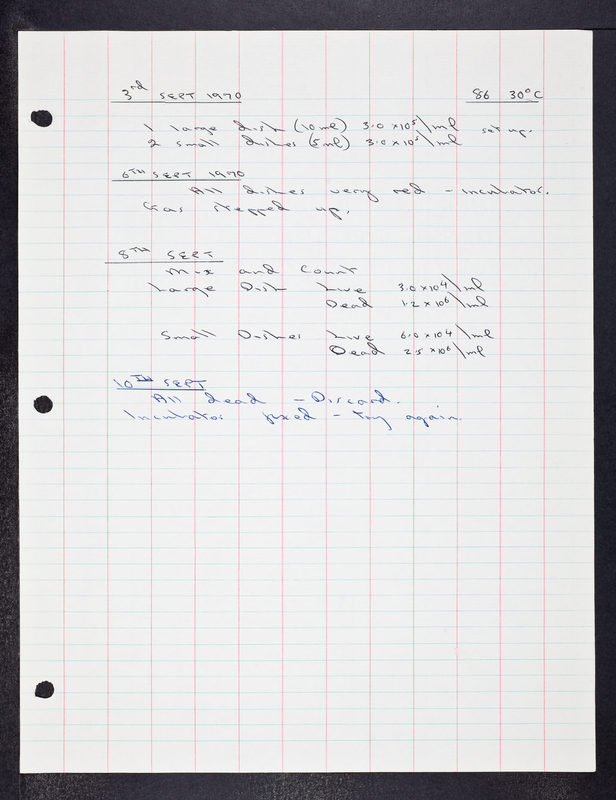 3rd SEPT 1970 86 30°C
1 large dish (10ml) 3.0 x 10⁵/ml set up.
2 small dishes (5ml) 3.0 x 10⁵/ml
6TH SEPT 1970
All dishes very red - Incubator.
Gas stepped up.
8TH SEPT
Mix and Count
Large Dish Live 3.0 x 10⁴/ml
Dead 1.2 x 10⁶/ml
Small Dishes Live 6.0 x 10⁴/ml
Dead 2.5 x 10⁶/ml
10TH SEPT
All dead - Discard.
Incubator fixed - try again.